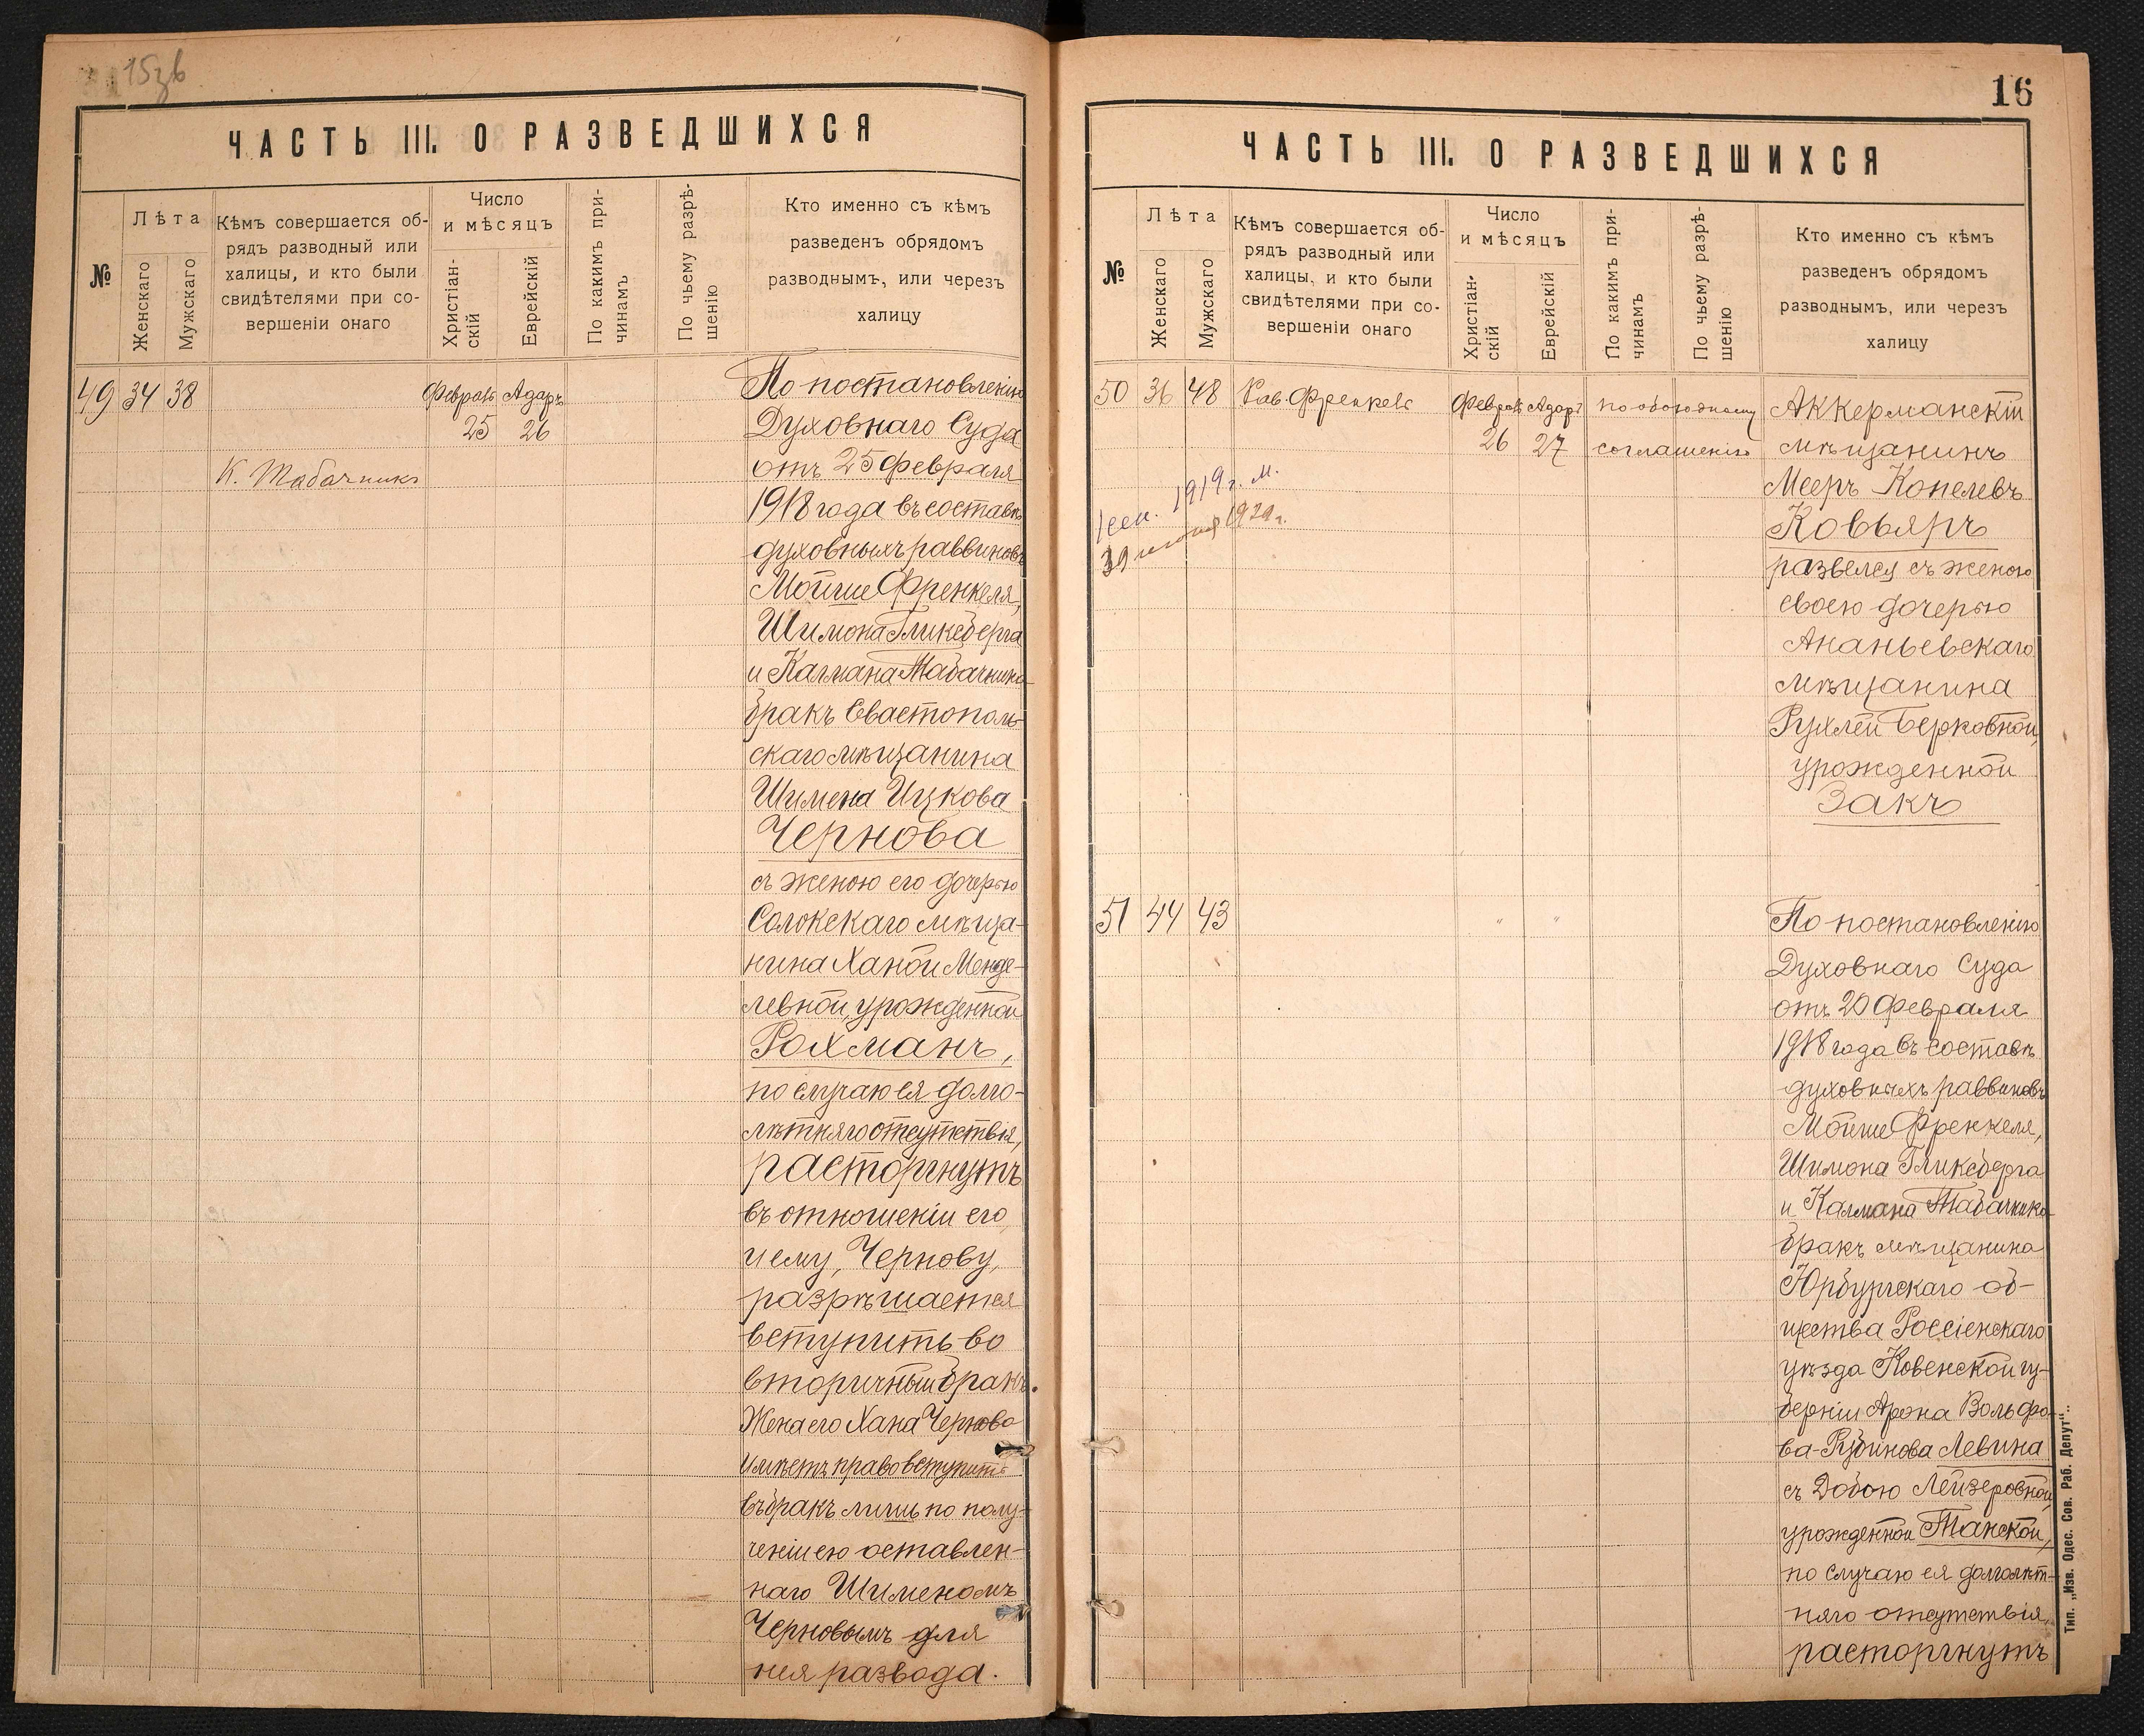 ЧАСТЬ III. О РАЗВЕДШИХСЯ
№
Лѣта
Женскаго
Мужскаго
Кѣмъ совершается об-
рядъ разводный или
халицы, и кто были
свидѣтелями при со-
вершеніи онаго
Число
и мѣсяцъ
Христіан-
скій
Еврейскій
По какимъ при-
чинамъ
По чьему разрѣ-
шенію
Кто именно съ кѣмъ
разведенъ обрядомъ
разводнымъ, или через
халицу
49 34 38
К. Табачникъ
Февраль Адаръ
25 26
По постановленію
Духовнаго Суда
отъ 25 Февраля
1918 года въ составѣ
духовныхъ раввиновъ
Мойше Френкеля,
Шимона Гликсберга
и Калмана Табачника
бракъ Севастополь-
скаго мѣщанина
Шимена Ицкова
Чернова
съ женою его дочерью
Солокскаго мѣща-
нина Ханой Менде-
левной, урожденной
Рохманъ,
по случаю ея долго-
лѣтняго отсутствія,
расторгнутъ
въ отношеніи его
и ему, Чернову,
разрѣшается
вступить во
вторичный бракъ.
Жена его Хана Чернова
имѣетъ право вступить
въ бракъ лишь по полу-
ченіи ею оставлен-
наго Шименомъ
Черновымъ для
нея развода.
16
ЧАСТЬ III. О РАЗВЕДШИХСЯ
№
Лѣта
Женскаго
Мужскаго
Кѣмъ совершается об-
рядъ разводный или
халицы, и кто были
свидѣтелями при со-
вершеніи онаго
Число
и мѣсяцъ
Христіан-
скій
Еврейскій
По какимъ при-
чинамъ
По чьему разрѣ-
шенію
Кто именно съ кѣмъ
разведенъ обрядомъ
разводнымъ, или через
халицу
50 36 48 Рав. Френкель
Февраль Адаръ
26 27
по обоюдному
соглашенію
1919 г.
Аккерманскій
мѣщанинъ
Мееръ Копелевъ
Ковьяръ
развелся съ женою
своею дочерью
Ананьевскаго
мѣщанина
Рухлей Берковной,
урожденной
Закъ
51 44 43 " "
По постановленію
Духовнаго Суда
отъ 20 Февраля
1918 года въ составѣ
духовныхъ раввиновъ
Мойше Френкеля,
Шимона Гликсберга
и Калмана Табачника
бракъ мѣщанина
Юрбургскаго об-
щества Россіенскаго
уѣзда Ковенской гу-
берніи Арона Вольфо-
ва-Рубинова Левина
съ Добою Лейзеровной,
урожденной Танской,
по случаю ея долголѣт-
няго отсутствія,
расторгнутъ
Тип. „Изв. Одес. Сов. Раб. Депут“.